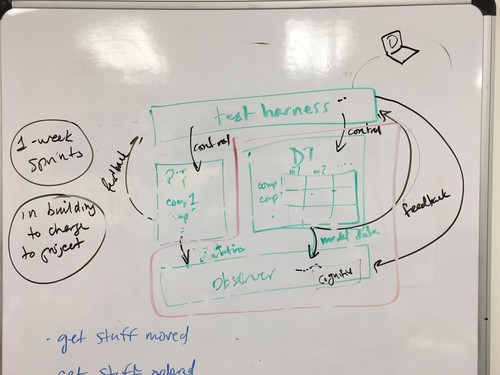 D
test harness
1-week
sprints
control
control
feedback
PT
comp 1
comp
DT
m1 m2
comp
comp
in building
to charge
to project
feedback
model data
Observer
cognitive
- get stuff moved
get stuff ordered